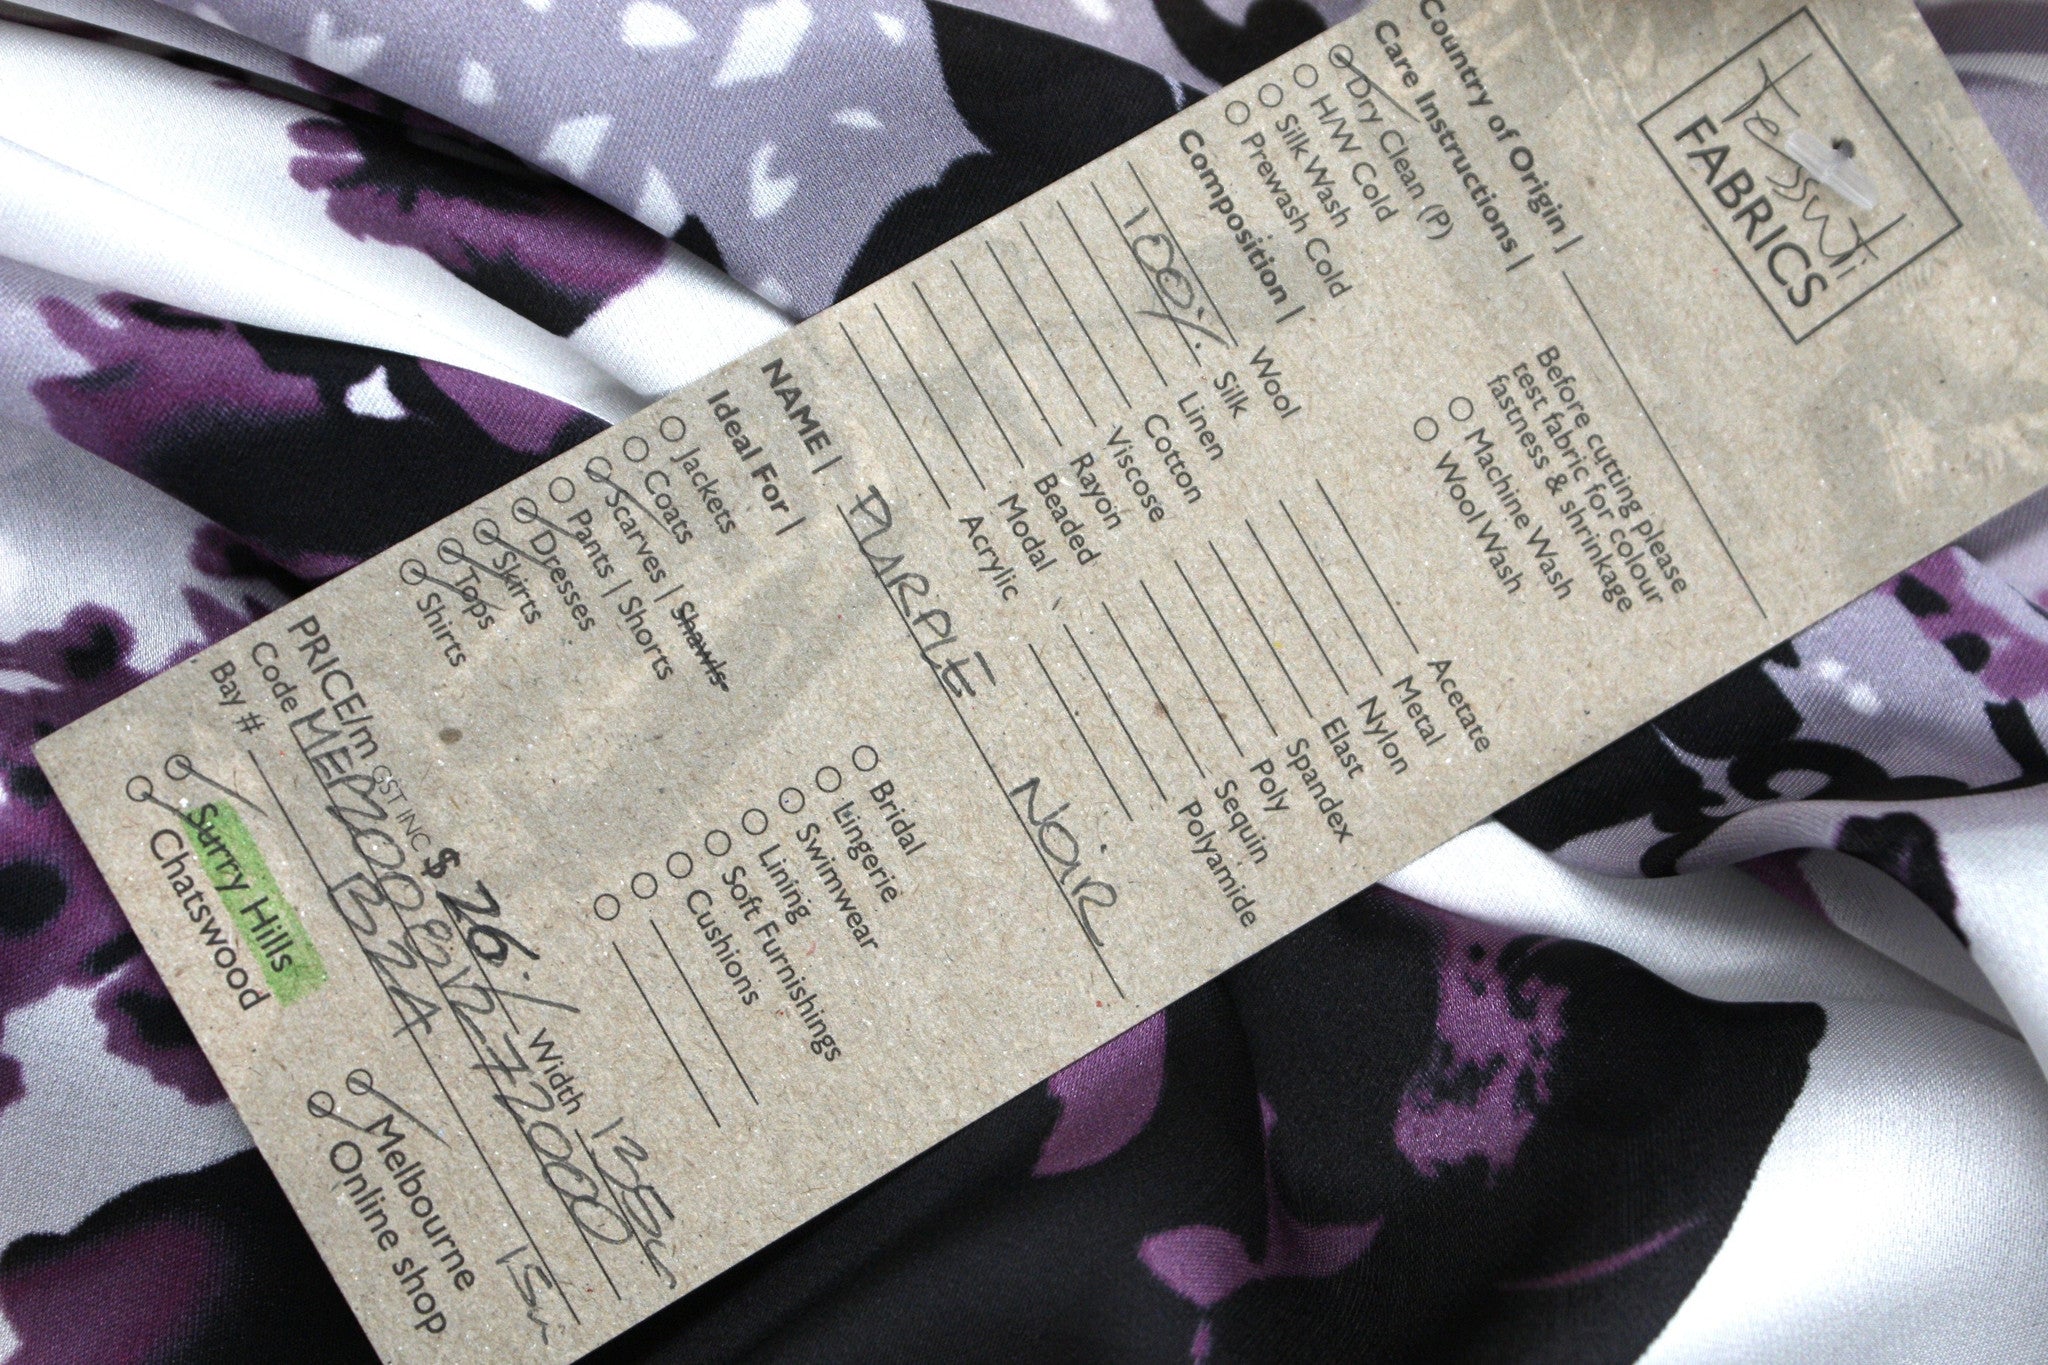 Tessuti
FABRICS
Country of Origin |
Care Instructions |
Dry Clean (P)
H/W Cold
Silk Wash
Prewash Cold
Before cutting please
test fabric for colour
fastness & shrinkage
Machine Wash
Wool Wash
Composition |
Wool
100% Silk
Linen
Cotton
Viscose
Rayon
Beaded
Modal
Acrylic
Acetate
Metal
Nylon
Elast
Spandex
Poly
Sequin
Polyamide
NAME | PURPLE NOIR
Ideal For |
Jackets
Coats
Scarves | Shawls
Pants | Shorts
Dresses
Skirts
Tops
Shirts
Bridal
Lingerie
Swimwear
Lining
Soft Furnishings
Cushions
PRICE/m GST INC $26./ Width
Code
Bay # B2A
Surry Hills
Chatswood
Melbourne
Online shop